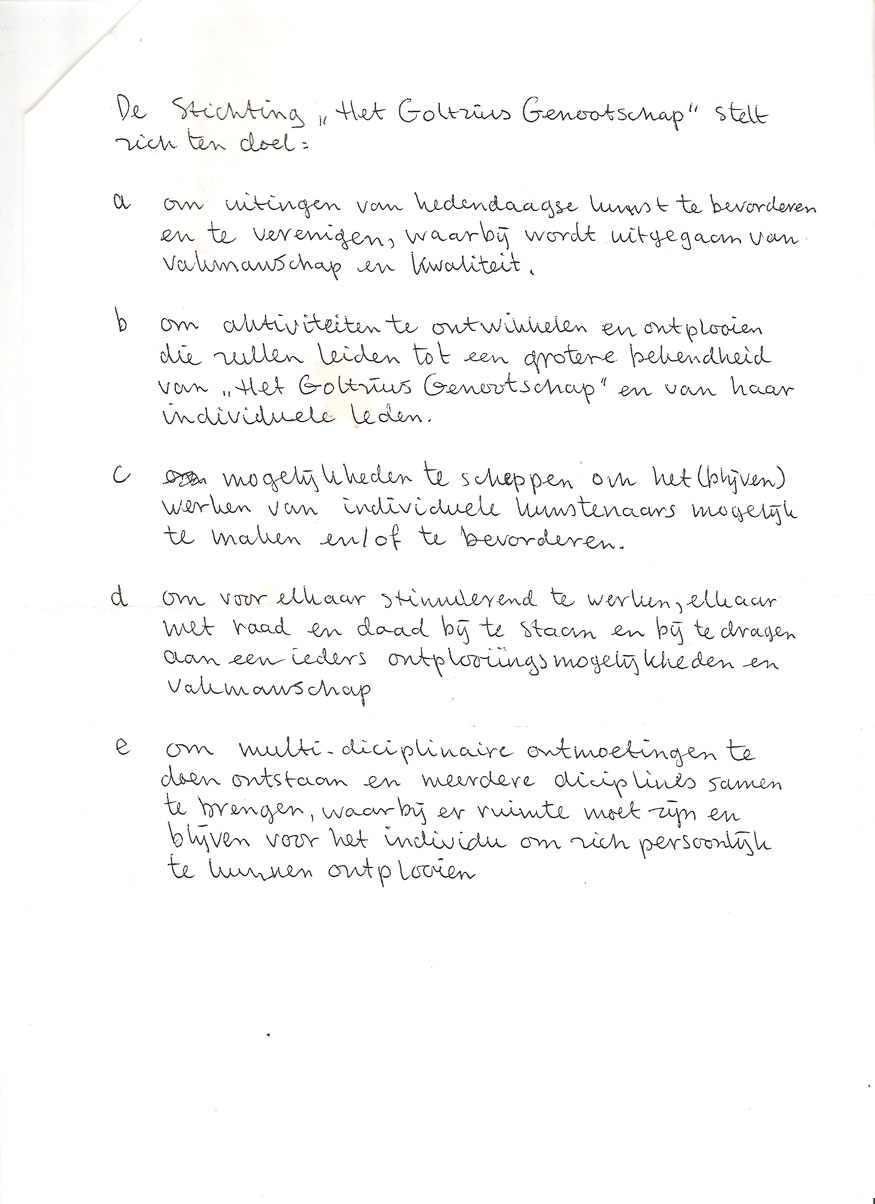 De Stichting „Het Goltzius Genootschap" stelt
zich ten doel:
a om uitingen van hedendaagse kunst te bevorderen
en te verenigen, waarbij wordt uitgegaan van
vakmanschap en kwaliteit.
b om aktiviteiten te ontwikkelen en ontplooien
die zullen leiden tot een grotere bekendheid
van „Het Goltzius Genootschap" en van haar
individuele leden.
c mogelijkheden te scheppen om het (blijven)
werken van individuele kunstenaars mogelijk
te maken en/of te bevorderen.
d om voor elkaar stimulerend te werken, elkaar
met raad en daad bij te staan en bij te dragen
aan een ieders ontplooiingsmogelijkheden en
vakmanschap
e om multi-diciplinaire ontmoetingen te
doen ontstaan en meerdere diciplines samen
te brengen, waarbij er ruimte moet zijn en
blijven voor het individu om zich persoonlijk
te kunnen ontplooien